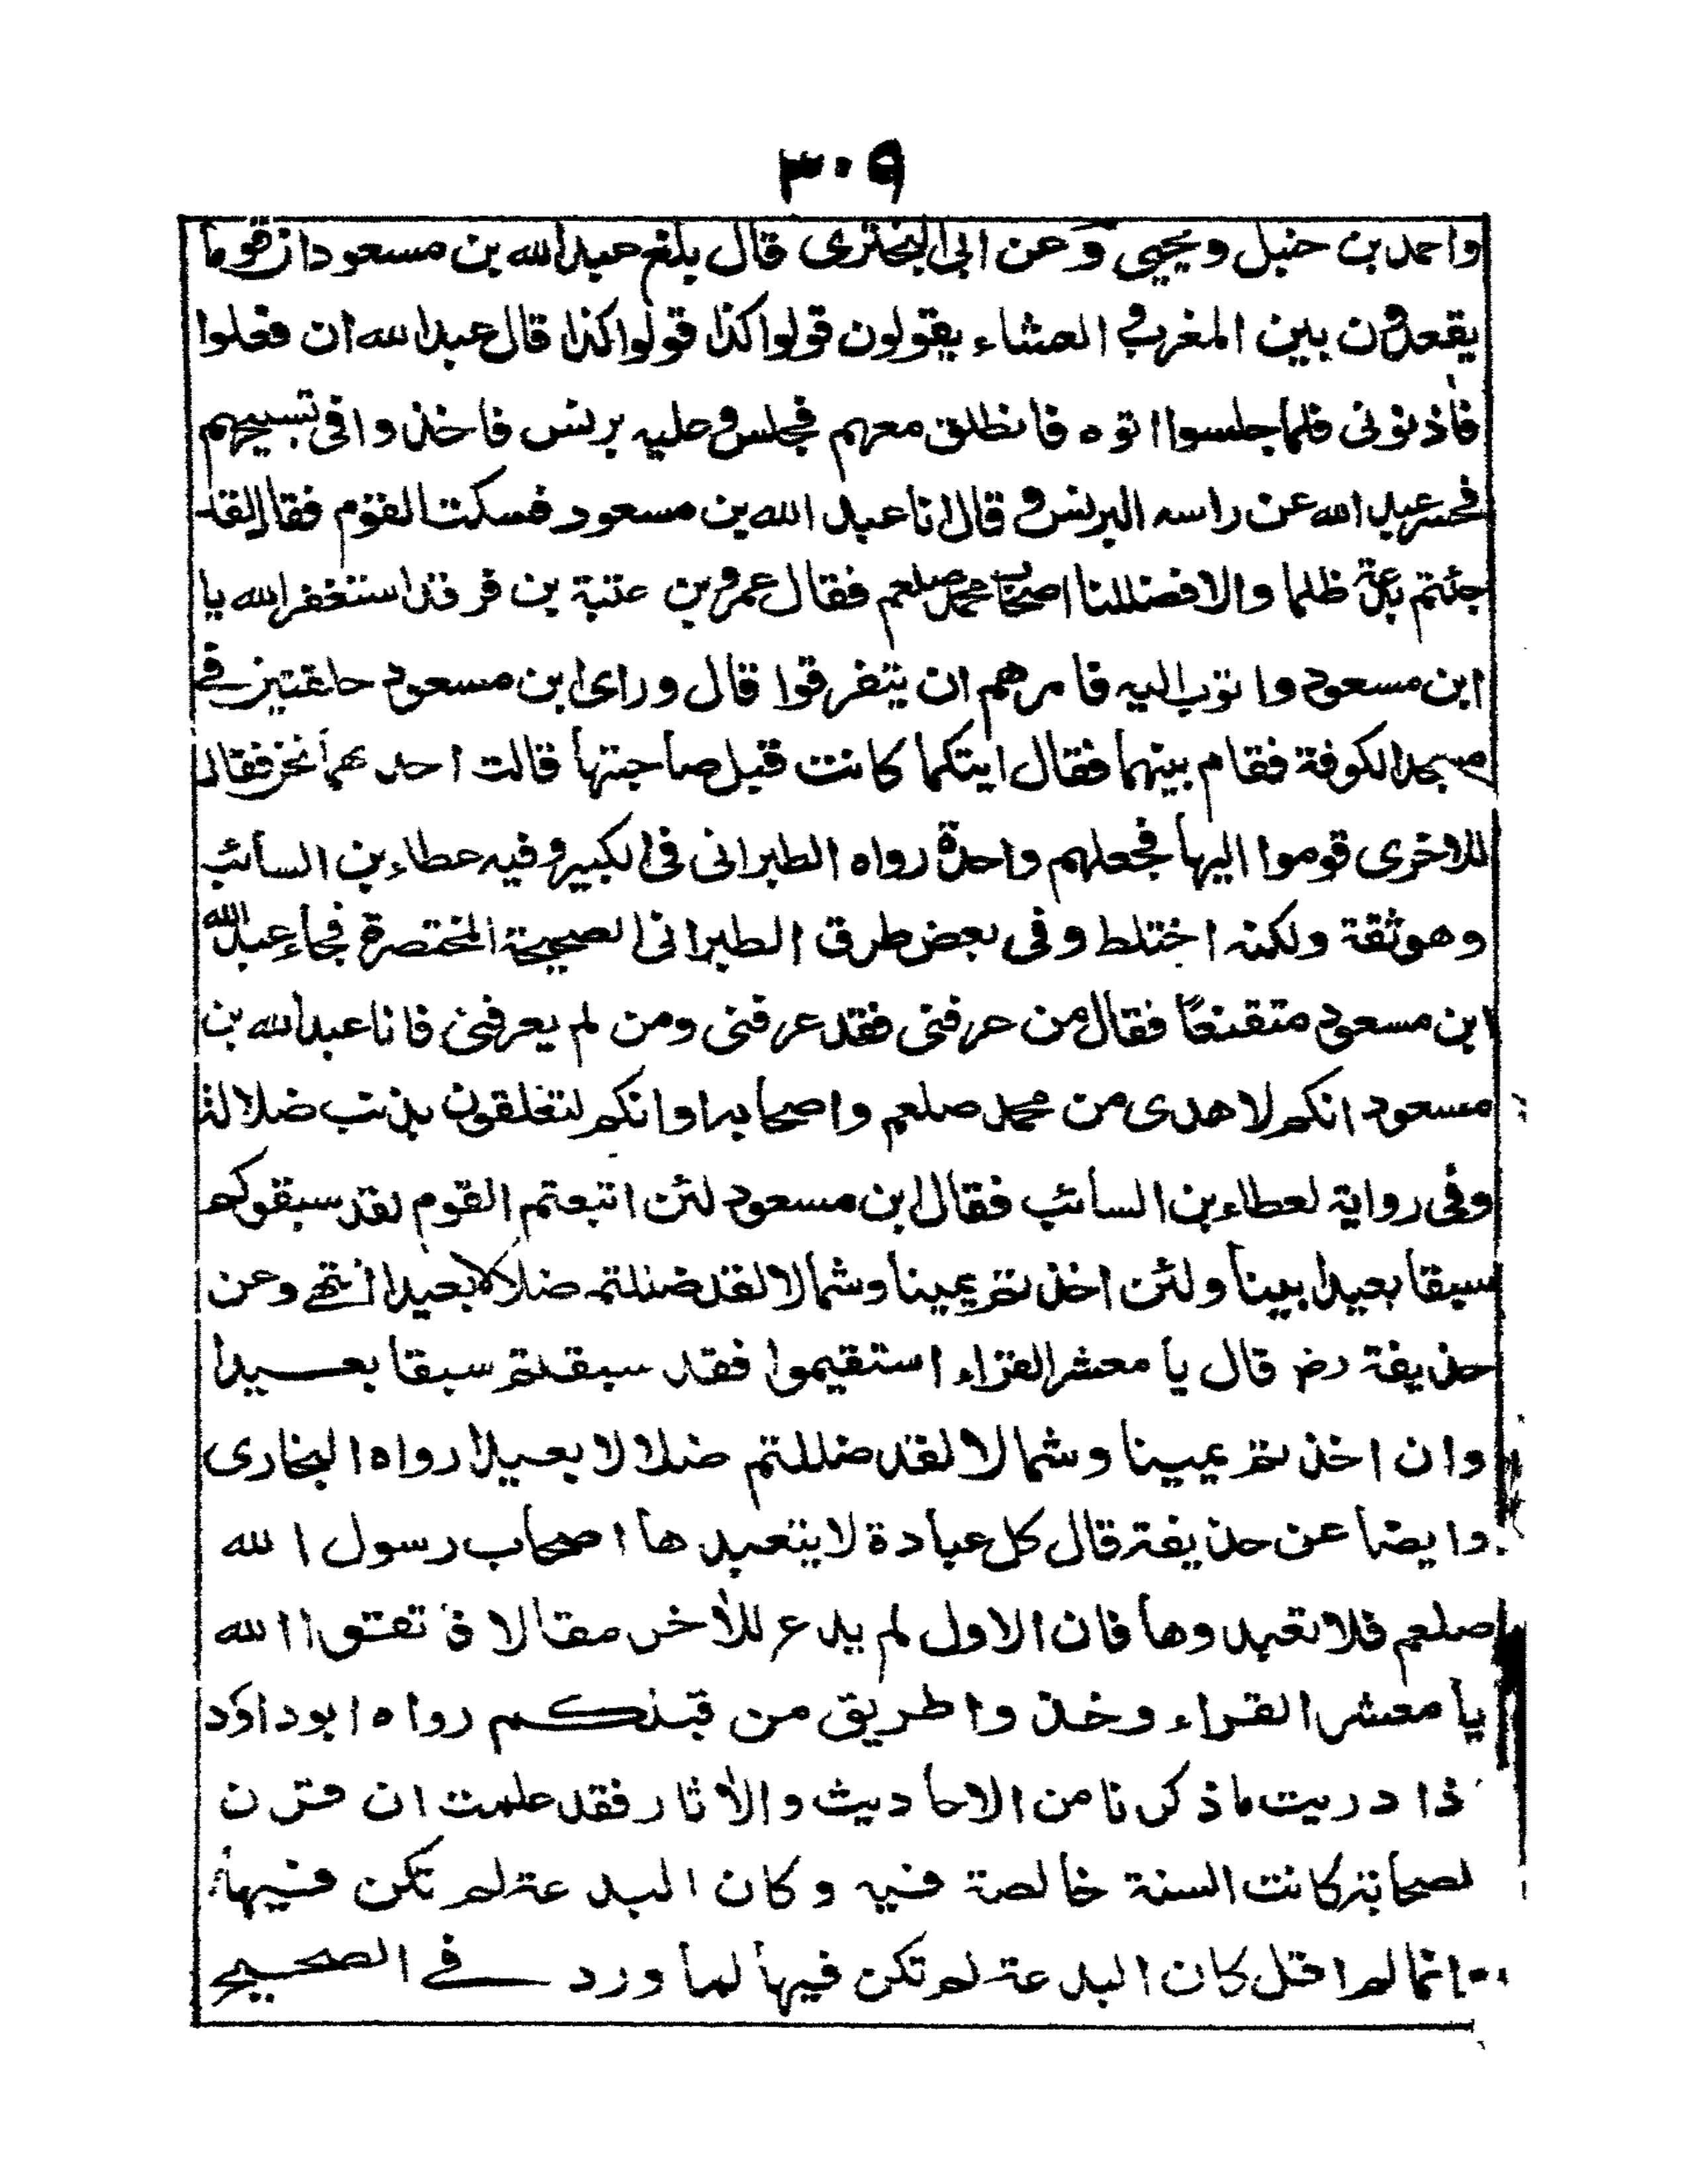 ٣٠٩
واحمد بن حنبل ويحيى وعن ابى البخترى قال بلغ عبد الله بن مسعود ان قوما
يقعدون بين المغرب و العشاء يقولون قولوا كذا قولوا كذا قال عبد الله ان فعلوا
فأذنونى فلما جلسوا اتوه فانطلق معهم فجلس وعليه برنس فاخذوا فى تسبيحهم
فحسر عبد الله عن راسه البرنس و قال انا عبد الله بن مسعود فسكت القوم فقال لقد
جئتم ببدعة ظلما والا فضللنا اصحاب محمد صلعم فقال عمرو بن عتبة بن فرقد استغفر الله يا
ابن مسعود واتوب اليه فامرهم ان يتفرقوا قال وراى ابن مسعود حلقتين فى
مسجد الكوفة فقام بينهما فقال ايتكما كانت قبل صاحبتها قالت احدهما نحن فقال
للاخرى قوموا اليها فجعلهم واحدة رواه الطبرانى فى الكبير وفيه عطاء بن السائب
وهو ثقة ولكنه اختلط وفى بعض طرق الطبرانى الصحيحة المختصرة فجاء عبد الله
ابن مسعود متقنعًا فقال من عرفنى فقد عرفنى ومن لم يعرفنى فانا عبد الله بن
مسعود انكم لاهدى من محمد صلعم واصحابه او انكم لتعلقون بذنب ضلالة
وفى رواية لعطاء بن السائب فقال ابن مسعود لئن اتبعتم القوم لقد سبقوكم
سبقا بعيدا بينا ولئن اخذتم يمينا وشمالا لقد ضللتم ضلالا بعيدا انتهى وعن
حذيفة رض قال يا معشر القراء استقيموا فقد سبقتم سبقا بعيدا
وان اخذتم يمينا وشمالا لقد ضللتم ضلالا بعيدا رواه البخارى
وايضا عن حذيفة قال كل عبادة لا يتعبدها اصحاب رسول الله
صلعم فلا تعبدوها فان الاول لم يدع للأخر مقالا فاتقوا الله
يا معشر القراء وخذوا طريق من قبلكم رواه ابو داود
ذا دريت ما ذكرنا من الاحاديث والأثار فقد علمت ان قرن
لصحابة كانت السنة خالصة فيه وكان البدعة لم تكن فيها
انما لم اقل كان البدعة لم تكن فيها لما ورد فى الصحيح